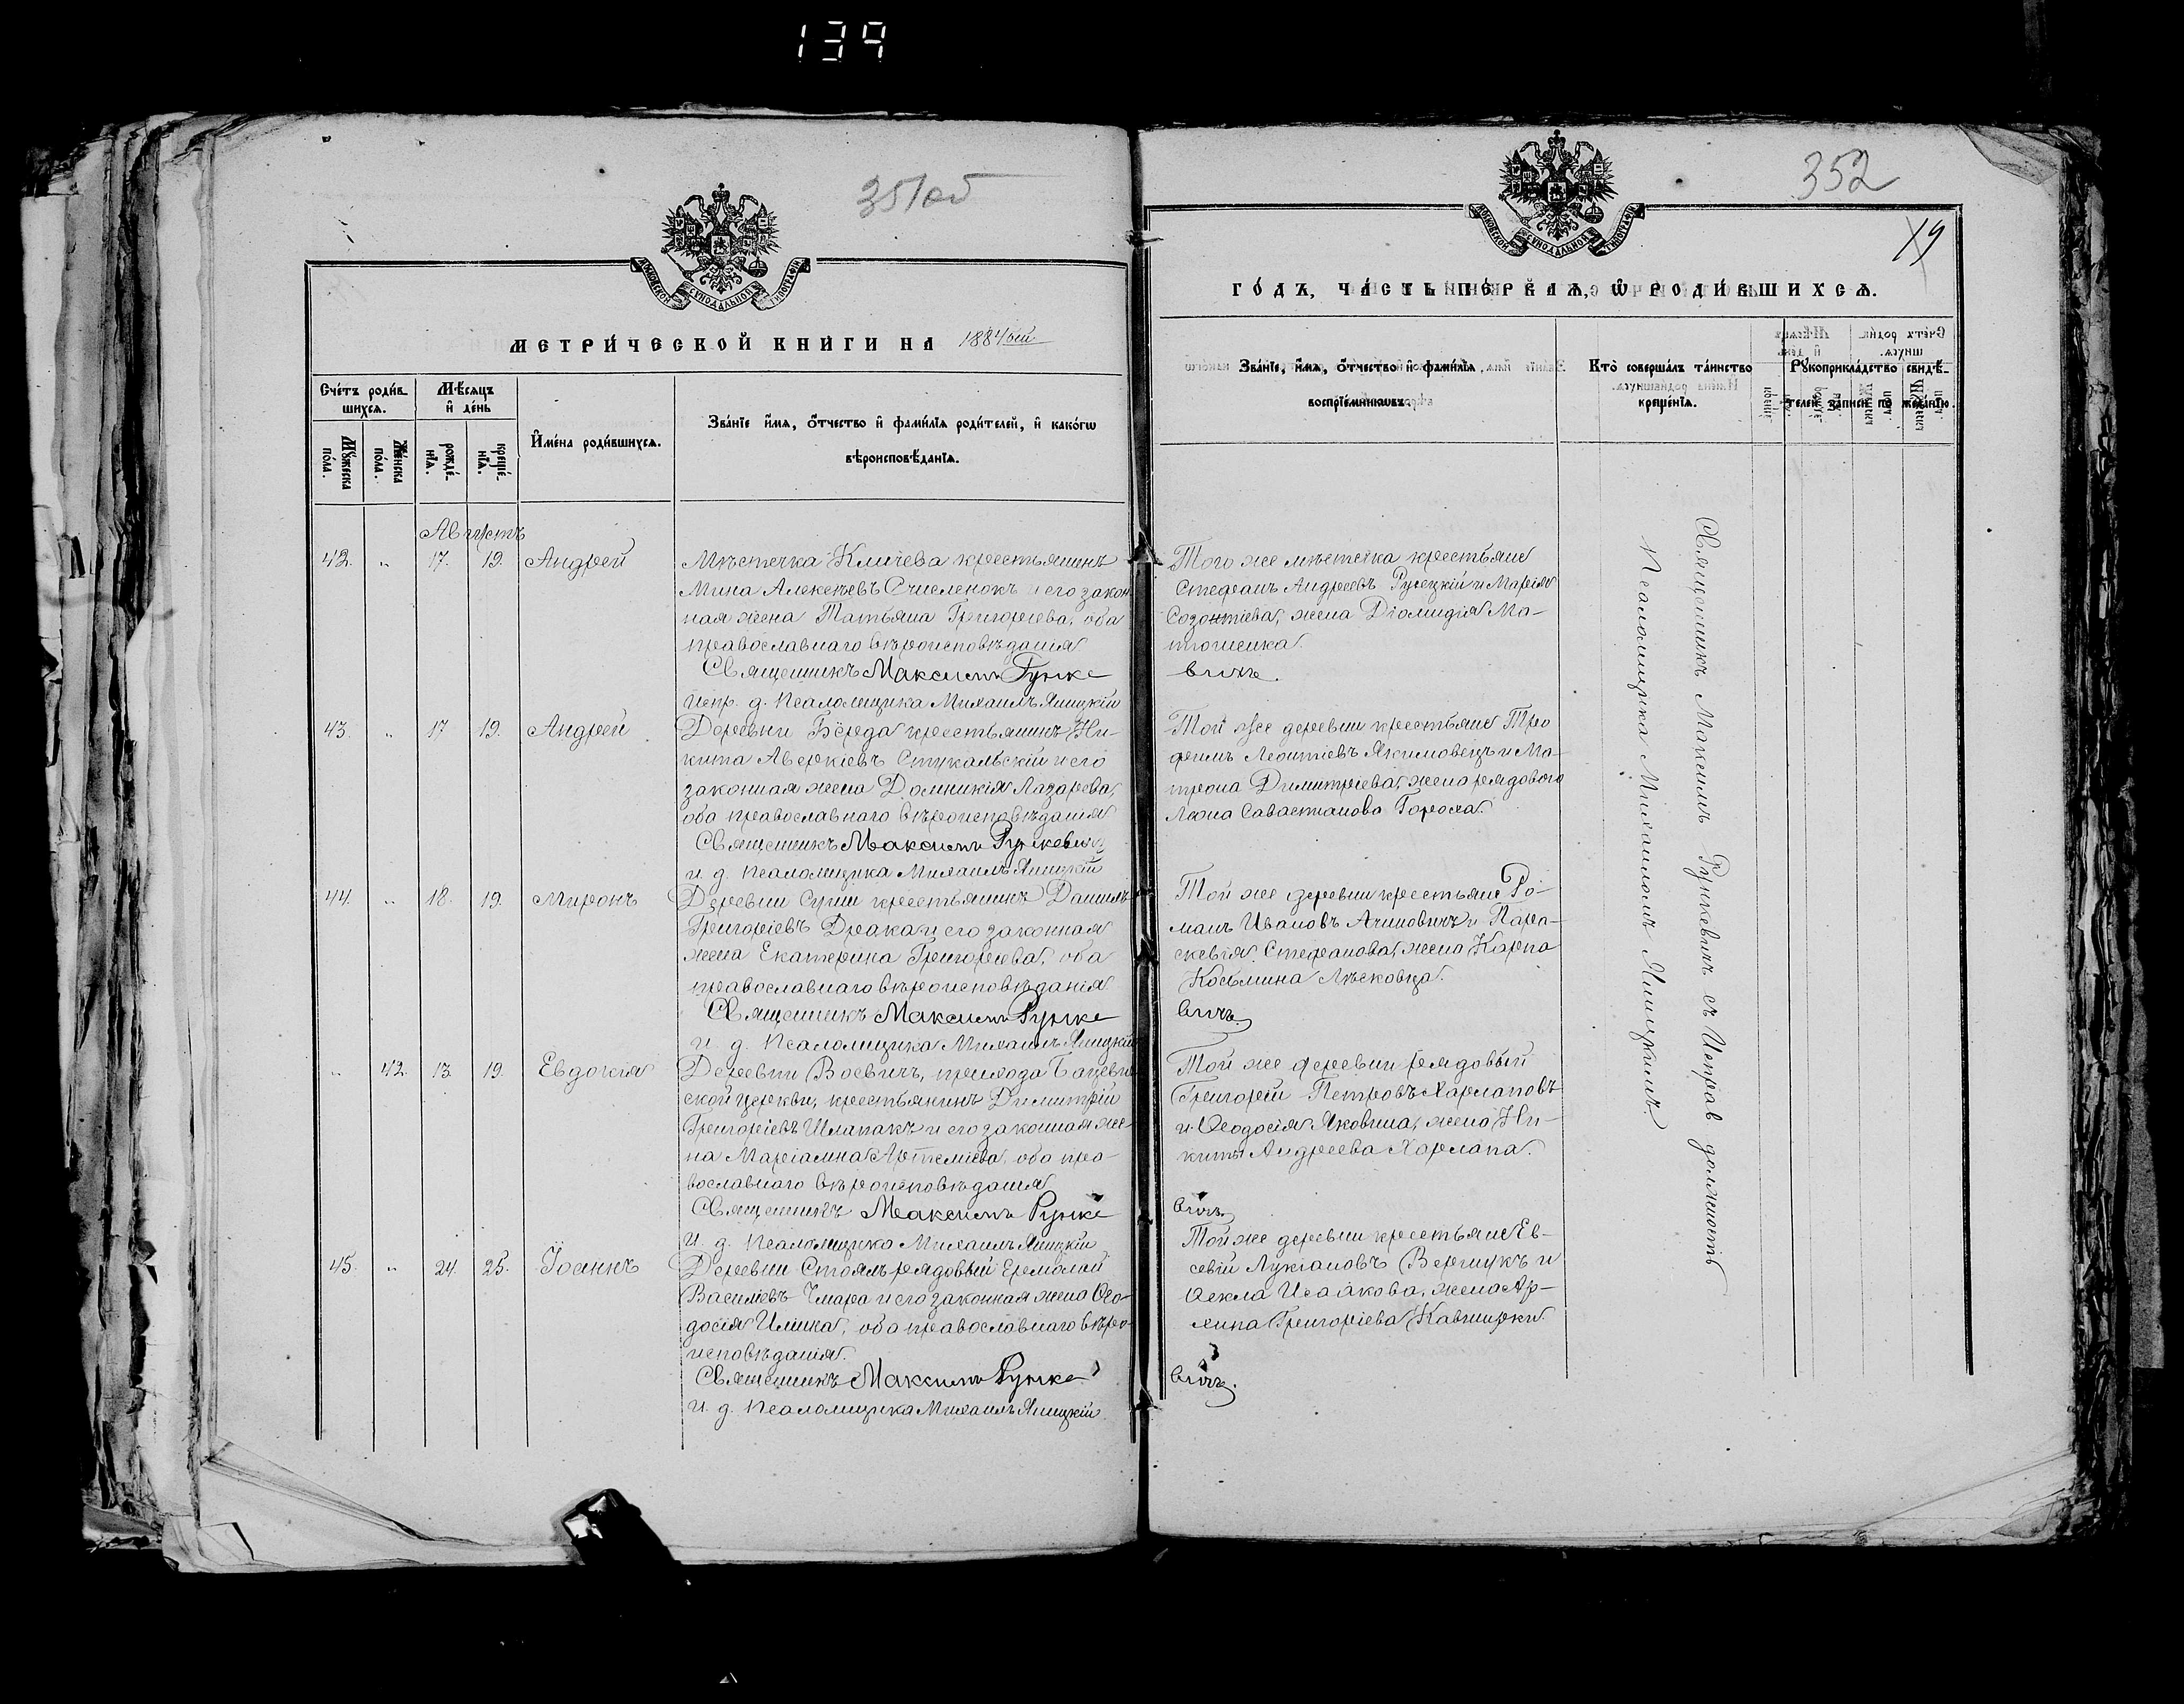 139
351об
МОСКОВСКОЙ СУНОДАЛЬНОЙ ТИПОГРАФІИ
МЕТРИ́ЧЕСКОЙ КНИ́ГИ НА 1884ый
Счéтъ роди́в-
шихся.
Мѣ́сяцъ
и҆ де́нь
Мꙋ́жеска
по́ла.
Же́нска
по́ла.
рожде́-
нїя.
креще́-
нїя.
И҆мена̀ роди́вшихся.
Зва́нїе и҆́мя, ѻ҆́тчество и҆ фами́лїя роди́телей, и҆ како́гѡ
вѣроисповѣ́данїя.
Августъ
42. „ 17. 19. Андрей
Мѣстечка Кличева крестьянинъ
Мина Алексѣевъ Счисленокъ и его закон
ная жена Татьяна Григоріева, оба
православнаго вѣроисповѣданія
Священникъ Максимъ Рунке
Испр. д. Псаломщика Михаилъ Яницкій
43. „ 17 19. Андрей
Деревни Бёрда крестьянинъ Ни-
кита Аверкіевъ Стукальскій и его
законная жена Домникія Лазарева,
оба православнаго вѣроисповѣданія
Священникъ Максимъ Рункевичъ
и. д. Псаломщика Михаилъ Яницкій
44. „ 18. 19. Миронъ
Деревни Суши крестьянинъ Даніилъ
Григоріевъ Драка и его законная
жена Екатерина Григорьева, оба
православнаго вѣроисповѣданія
Священникъ Максимъ Рунке
и. д. Псаломщика Михаилъ Яницкій
„ 42. 13. 19. Евдокія
Деревни Воевичъ, прихода Бацеви
ской церкви, крестьянинъ Димитрій
Григоріевъ Шлапакъ и его законная же
на Маріамна Артеміева, оба пра-
вославнаго вѣроисповѣданія
Священникъ Максимъ Рунке
И. д. Псаломщика Михаилъ Яницкій
45. „ 24. 25. Іоаннъ
Деревни Стоялъ рядовый Ермолай
Василіевъ Чмара и его законная жена Ѳео-
досія Ильина, оба православнаго вѣро-
исповѣданія.
Священникъ Максимъ Рунке
и. д. Псаломщика Михаилъ Яницкій
352
19
МОСКОВСКОЙ СУНОДАЛЬНОЙ ТИПОГРАФІИ
ГО́ДЪ, ЧА́СТЬ ПЕ́РВАЯ, Ѡ҆ РОДИ́ВШИХСЯ.
Зва́нїе, и҆́мя, ѻ҆́тчество и҆ фами́лїя
воспрїе́мниковъ.
Кто̀ соверша́лъ та́инство
креще́нїя.
Рꙋкоприкла́дство свидѣ́-
телей за́писи по жела́нїю.
Того же мѣстечка крестьяне
Стефанъ Андреевъ Русецкій и Марія
Созонтіева, жена Діомидія Ма-
тюшенка.
вичъ.
Той же деревни крестьяне Тро
фимъ Леонтіевъ Якимовецъ и Ма-
трона Димитріева, жена рядового
Лаона Савастіанова Гороха.
Той же деревни крестьяне Ро-
манъ Ивановъ Ачиновичъ и Пара-
скевія Стефанова, жена Карпа
Косьмина Лѣсковца.
вичъ.
Той же деревни рядовый
Григорій Петровъ Харлаповъ
и Ѳеодосія Яковина, жена Ни-
киты Андреева Харлапа.
вичъ.
Той же деревни крестьяне Ев-
севій Лукіановъ Вергнукъ и
Ѳекла Исаакова, жена
Григоріева
вичъ.
Священникъ Максимъ Рункевичъ съ Исправ должность
Псаломщика Михаиломъ Яницкимъ